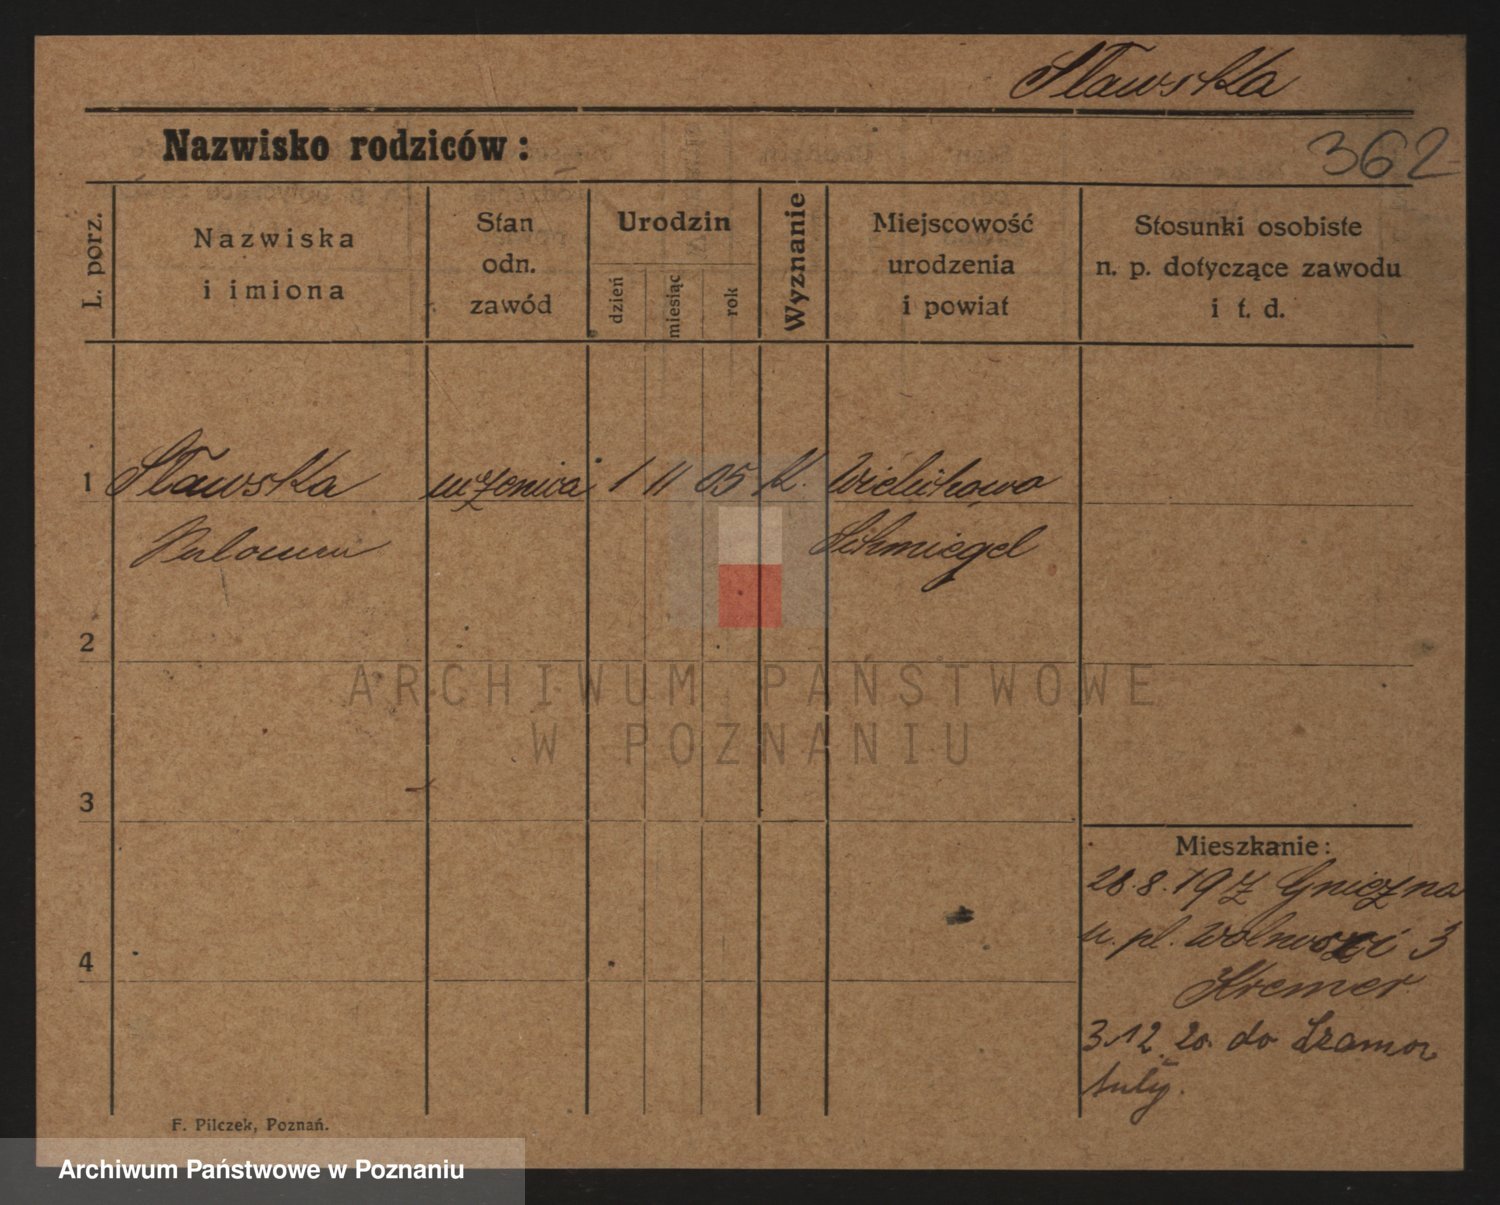 Sławska
362
Nazwisko rodziców:
L. porz.
Nazwiska
i imiona
Stan
odn.
zawód
Urodzin
dzień
miesiąc
rok
Wyznanie
Miejscowość
urodzenia
i powiat
Stosunki osobiste
n. p. dotyczące zawodu
i t. d.
1 Sławska uczenica 1 11 05 k. Wielichowo
Schmiegel
2
3
4
Mieszkanie:
28.8.19 z Gniezna
u. pl. Wolności 3
Kremer
3.12.20. do Szamo-
tuły.
F. Pilczek, Poznań.
ARCHIWUM PAŃSTWOWE
W POZNANIU
Archiwum Państwowe w Poznaniu